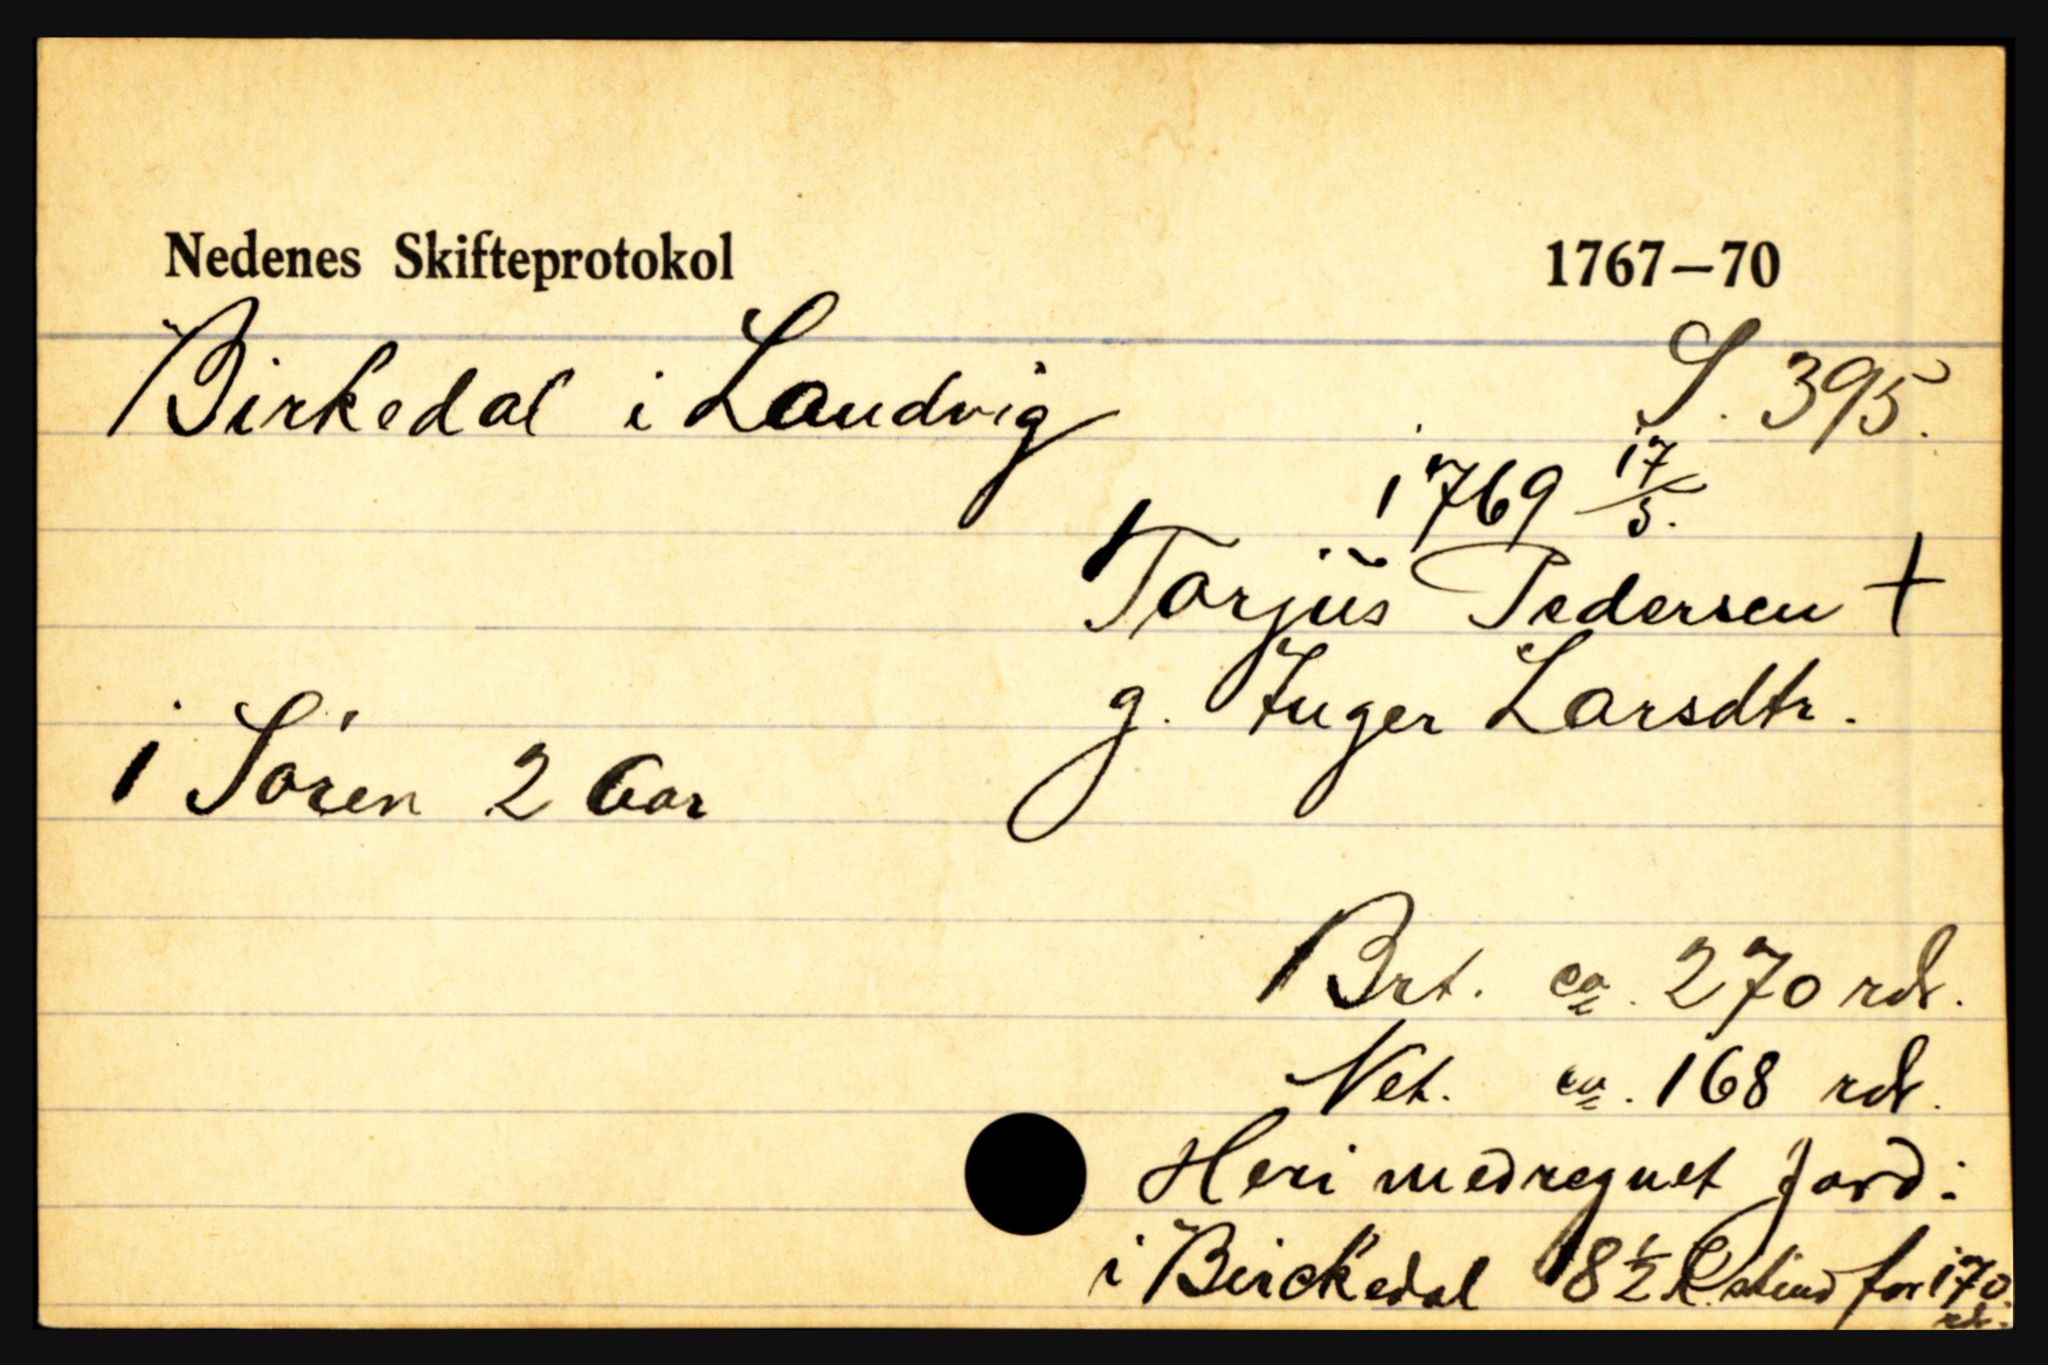 Nedenes Skifteprotokol 1767–70
Birkedal i Landvig S. 395.
1769 17/5.
Torjüs Pedersen +
g. Inger Larsdtr.
1 Sören 2 aar
Brt. ca. 270 rdr.
Net. ca. 168 rdr.
Heri medregnet Jord:
i Birckedal 8½ K.skind for 170
rdr.